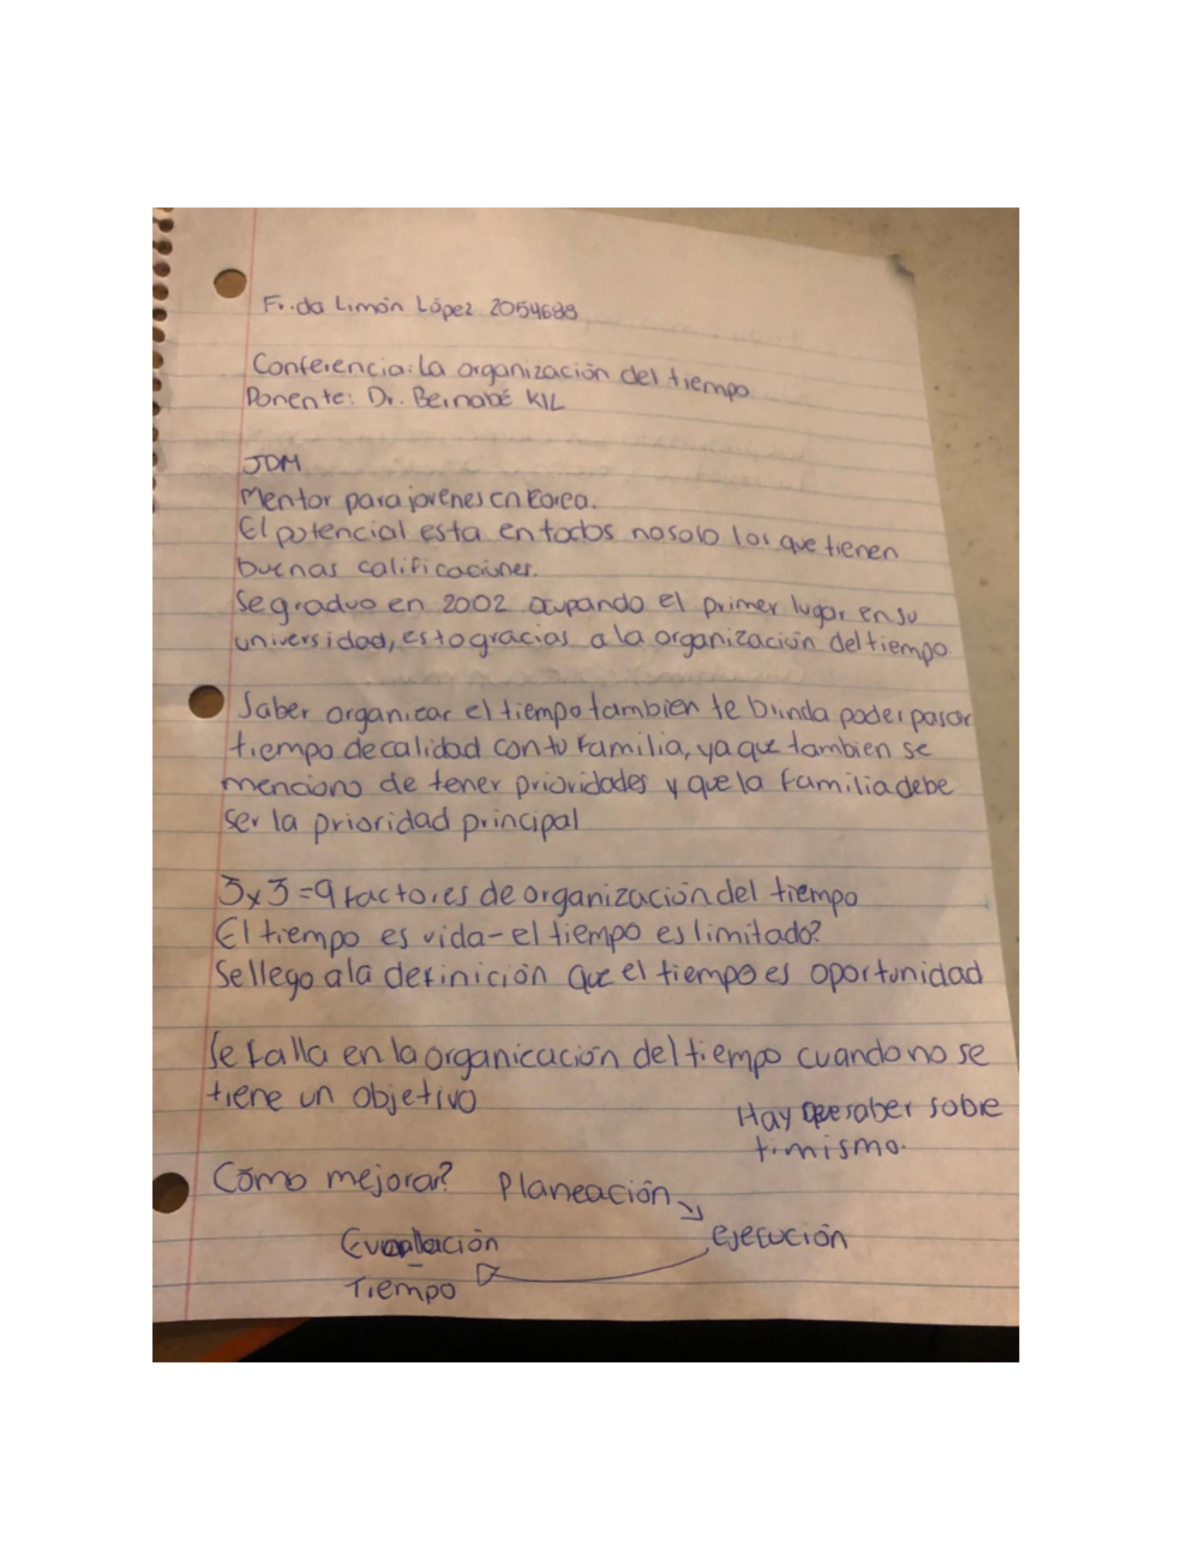 Frida Limón López 2054688
Conferencia: La organización del tiempo
Ponente: Dr. Bernabé KIL
JDM
Mentor para jovenes en Corea.
El potencial esta en todos no solo los que tienen
buenas calificaciones.
Se graduo en 2002 ocupando el primer lugar en su
universidad, esto gracias a la organización del tiempo
Saber organizar el tiempo tambien te brinda poder pasar
tiempo de calidad con tu familia, ya que tambien se
menciono de tener prioridades y que la familia debe
ser la prioridad principal
3x3=9 factores de organización del tiempo
El tiempo es vida - el tiempo es limitado?
Se llego a la definición que el tiempo es oportunidad
Se falla en la organicación del tiempo cuando no se
tiene un objetivo
Hay que saber sobre
ti mismo.
Cómo mejorar? Planeación
Evaluación ejecución
Tiempo